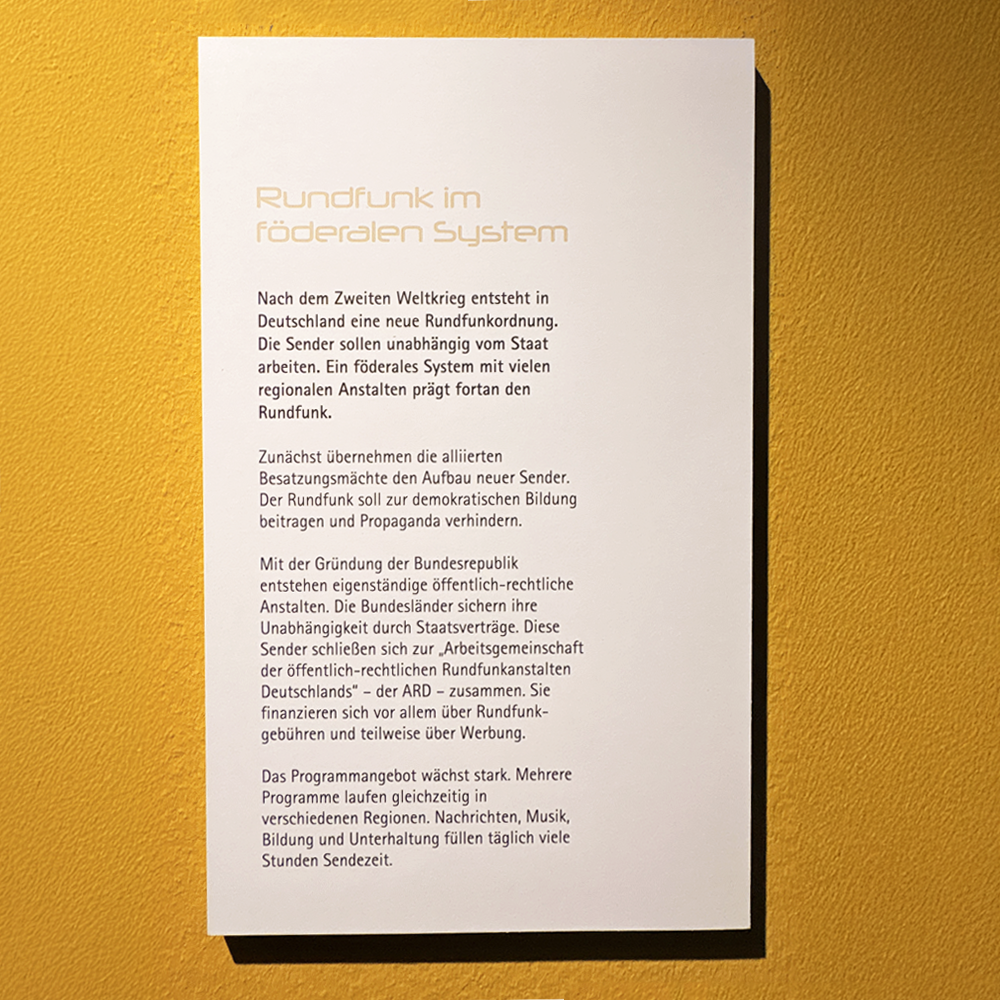 Rundfunk im
föderalen System
Nach dem Zweiten Weltkrieg entsteht in
Deutschland eine neue Rundfunkordnung.
Die Sender sollen unabhängig vom Staat
arbeiten. Ein föderales System mit vielen
regionalen Anstalten prägt fortan den
Rundfunk.
Zunächst übernehmen die alliierten
Besatzungsmächte den Aufbau neuer Sender.
Der Rundfunk soll zur demokratischen Bildung
beitragen und Propaganda verhindern.
Mit der Gründung der Bundesrepublik
entstehen eigenständige öffentlich-rechtliche
Anstalten. Die Bundesländer sichern ihre
Unabhängigkeit durch Staatsverträge. Diese
Sender schließen sich zur „Arbeitsgemeinschaft
der öffentlich-rechtlichen Rundfunkanstalten
Deutschlands“ – der ARD – zusammen. Sie
finanzieren sich vor allem über Rundfunk-
gebühren und teilweise über Werbung.
Das Programmangebot wächst stark. Mehrere
Programme laufen gleichzeitig in
verschiedenen Regionen. Nachrichten, Musik,
Bildung und Unterhaltung füllen täglich viele
Stunden Sendezeit.